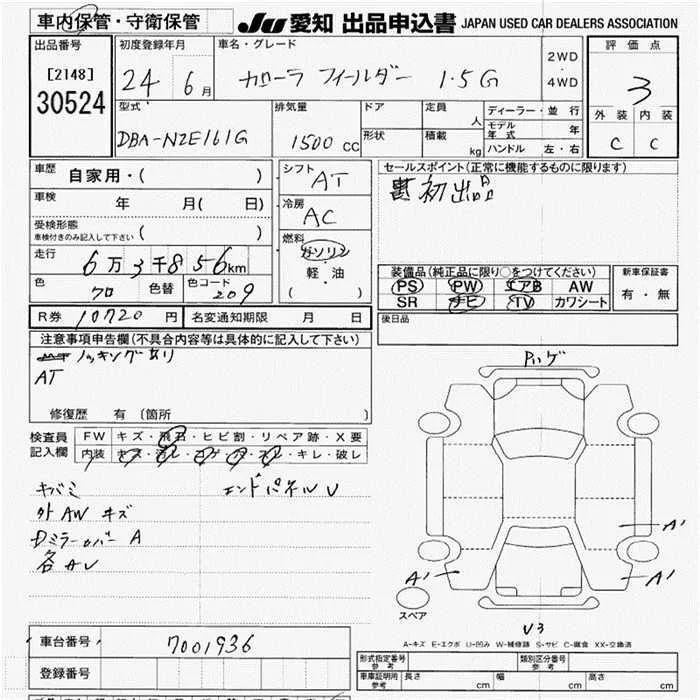 車内保管・守衛保管
JU 愛知 出品申込書 JAPAN USED CAR DEALERS ASSOCIATION
出品番号 初度登録年月 車名・グレード 評価点
[2148]
30524
24 6月 カローラ フィールダー 1.5G
2WD
・
4WD
3
外装 内装
C C
型式 排気量 ドア 定員 人 ディーラー・並行
DBA-NZE161G 1500cc 形状 積載 kg
モデル年式 年
ハンドル 左・右
車歴 自家用・( )
車検 年 月( 日)
受検形態
車検付きのみ記入して下さい ( )
走行 6万3千856km
色 クロ 色替 色コード 209
シフト AT
冷房 AC
燃料
ガソリン
・
軽・油
( )
セールスポイント(正常に機能するものに限ります)
初出品
装備品(純正品に限り○をつけてください) 新車保証書
PS PW エアB AW
SR ナビ TV カワシート
有・無
R券 10720円 名変通知期限 月 日
後日品
注意事項申告欄(不具合内容等は具体的に記入して下さい)
ノッキングあり
AT
修復歴 有 〔箇所 〕
検査員記入欄
FW キズ・飛石・ヒビ割・リペア跡・X要
内装 キズ・汚レ・コゲ・穴・スレ・キレ・破レ
キバミ エンドパネルU
外AWキズ
DミラーカバーA
各AU
Pハゲ
A'
A' A'
スペア
U3
A-キズ E-エクボ U-凹み W-補修跡 S-サビ C-腐食 XX-交換済
車台番号 7001936
登録番号
形式指定番号 参考 類別区分番号 参考
車庫証明用 参考 長さ cm 幅 cm 高さ cm